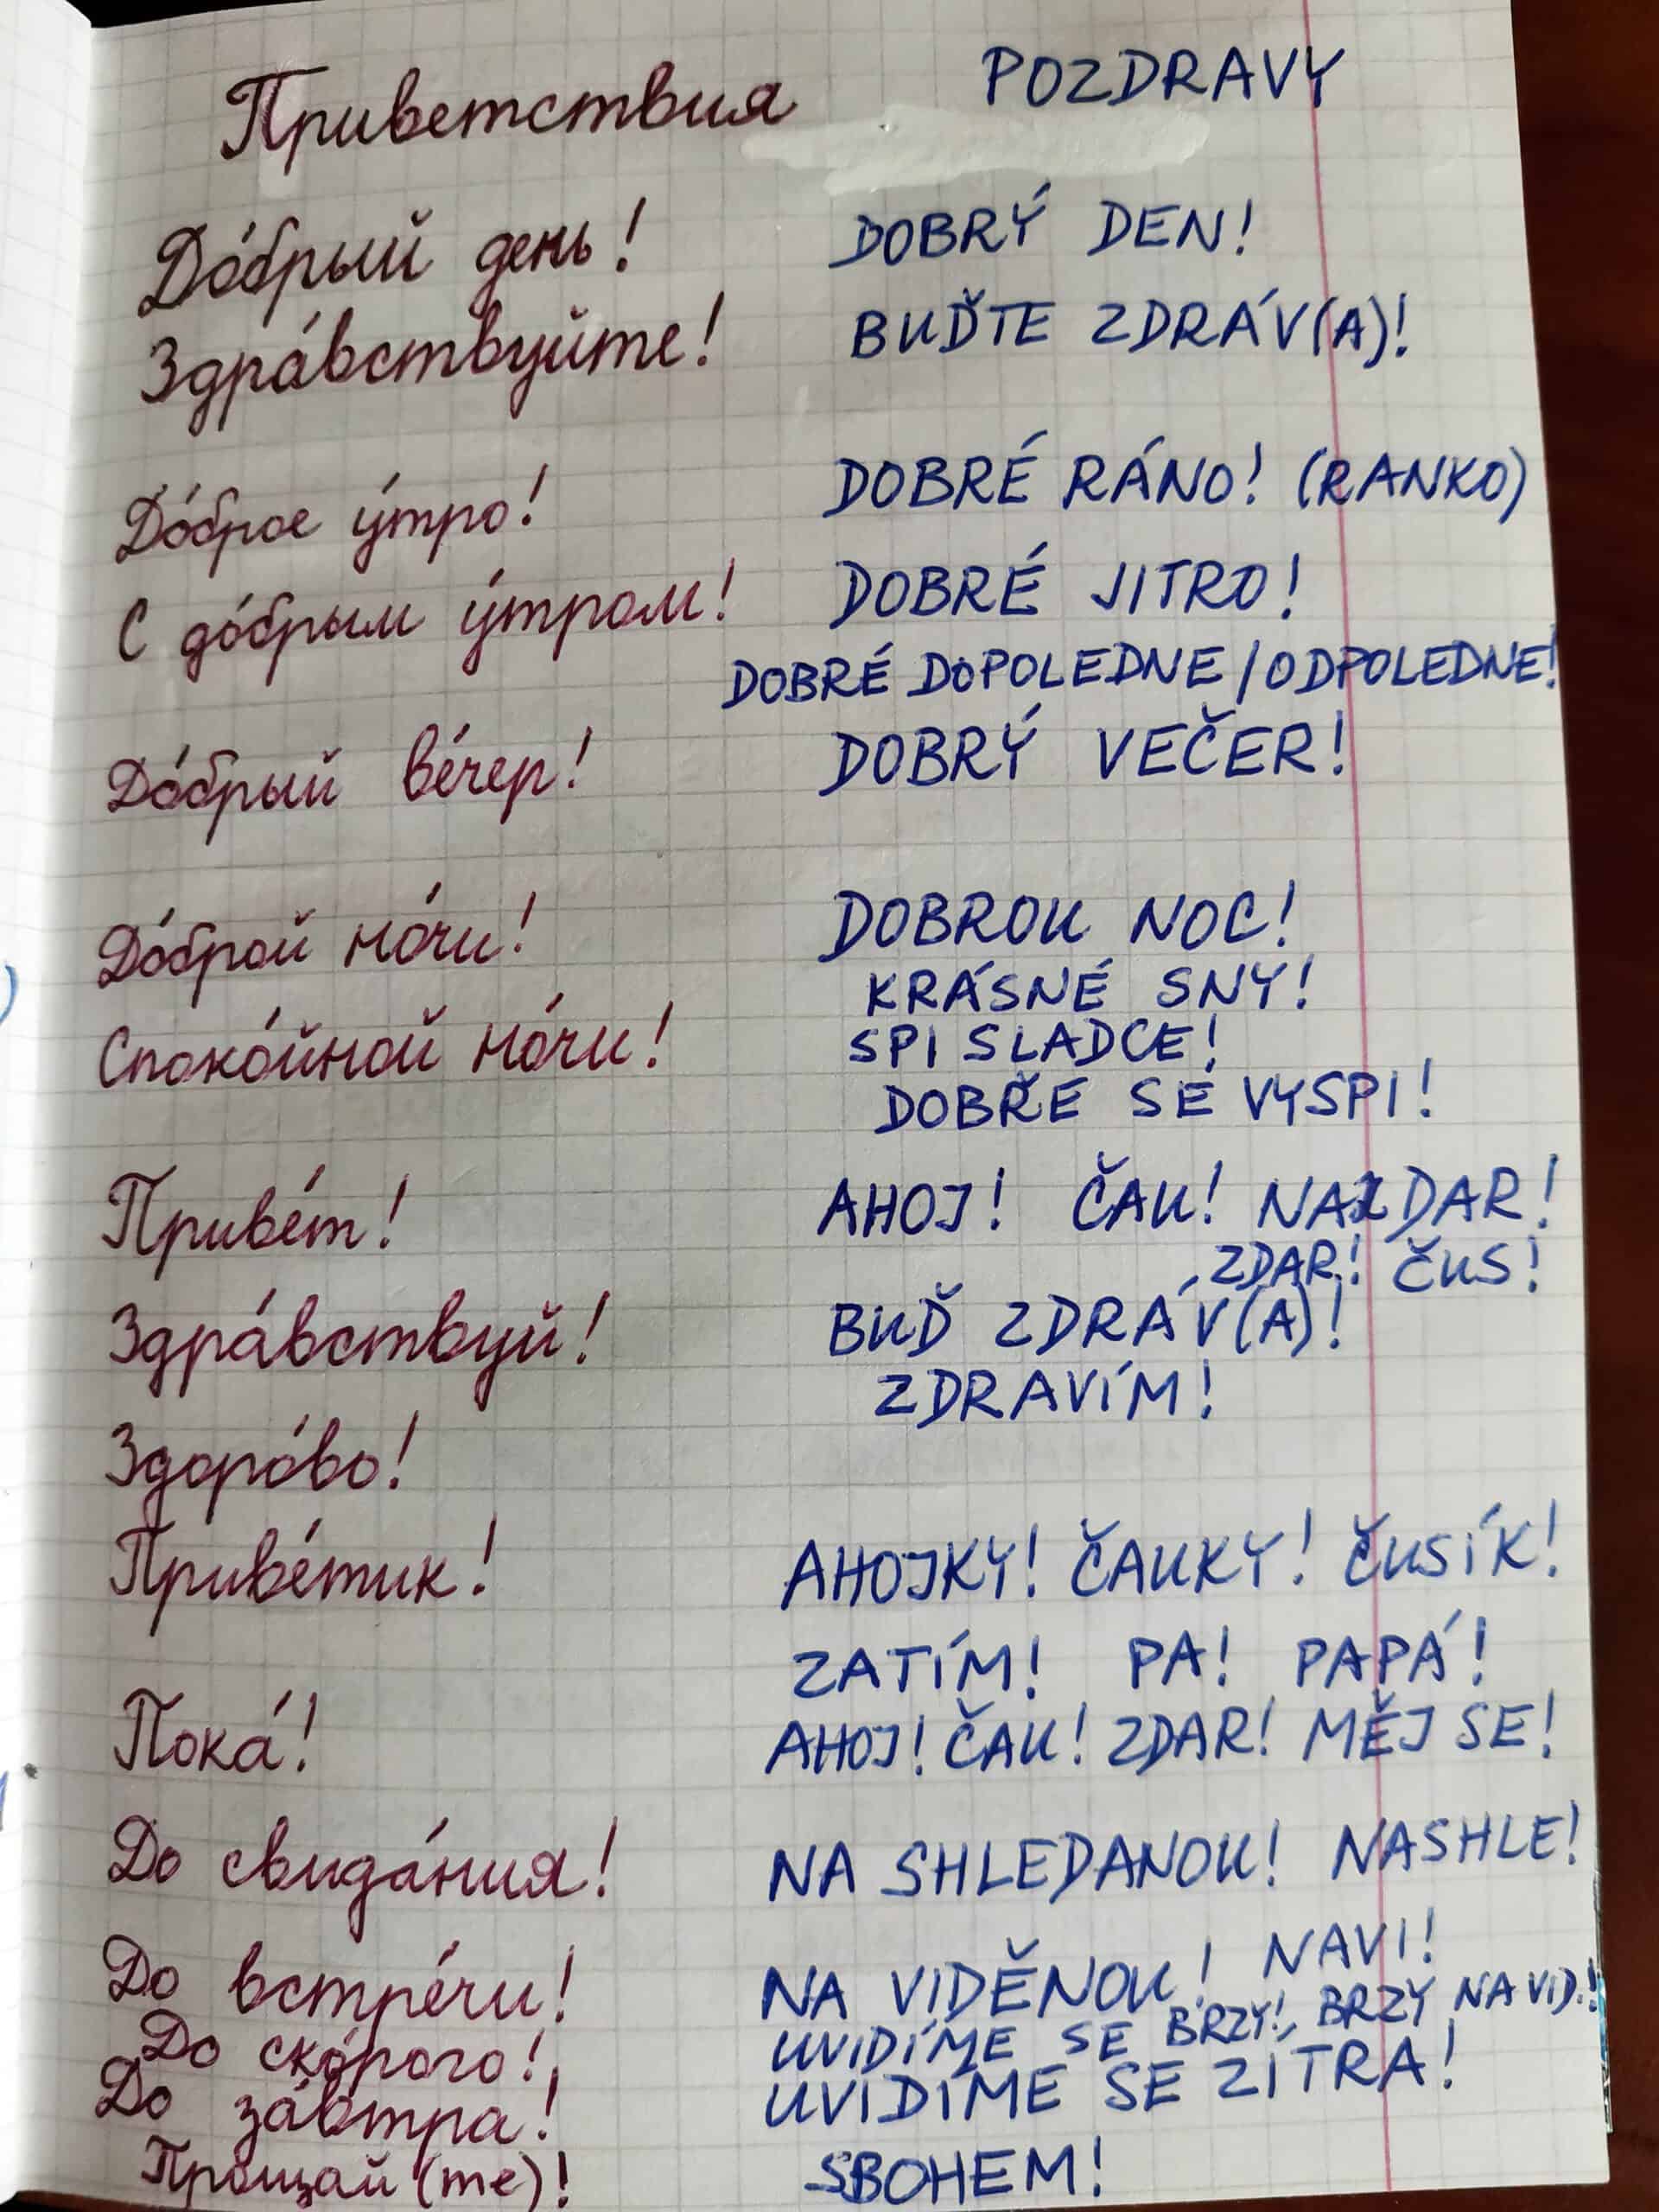 Приветствия POZDRAVY
До́брый день! DOBRÝ DEN!
Здра́вствуйте! BUĎTE ZDRÁV(A)!
До́брое у́тро! DOBRÉ RÁNO! (RANKO)
С до́брым у́тром! DOBRÉ JITRO!
DOBRÉ DOPOLEDNE/ODPOLEDNE!
До́брый ве́чер! DOBRÝ VEČER!
До́брой но́чи! DOBROU NOC!
KRÁSNÉ SNY!
Споко́йной но́чи! SPI SLADCE!
DOBŘE SE VYSPI!
Приве́т! AHOJ! ČAU! NAZDAR!
ZDAR! ČUS!
Здра́вствуй! BUĎ ZDRÁV(A)!
ZDRAVÍM!
Здоро́во!
Приве́тик! AHOJKY! ČAUKY! ČUSÍK!
ZATÍM! PA! PAPÁ!
Пока́! AHOJ! ČAU! ZDAR! MĚJ SE!
До свида́ния! NA SHLEDANOU! NASHLE!
До встре́чи! NA VIDĚNOU! NAVI!
До ско́рого! UVIDÍME SE BRZY!, BRZY NA VID.!
До за́втра! UVIDÍME SE ZÍTRA!
Проща́й(те)! SBOHEM!